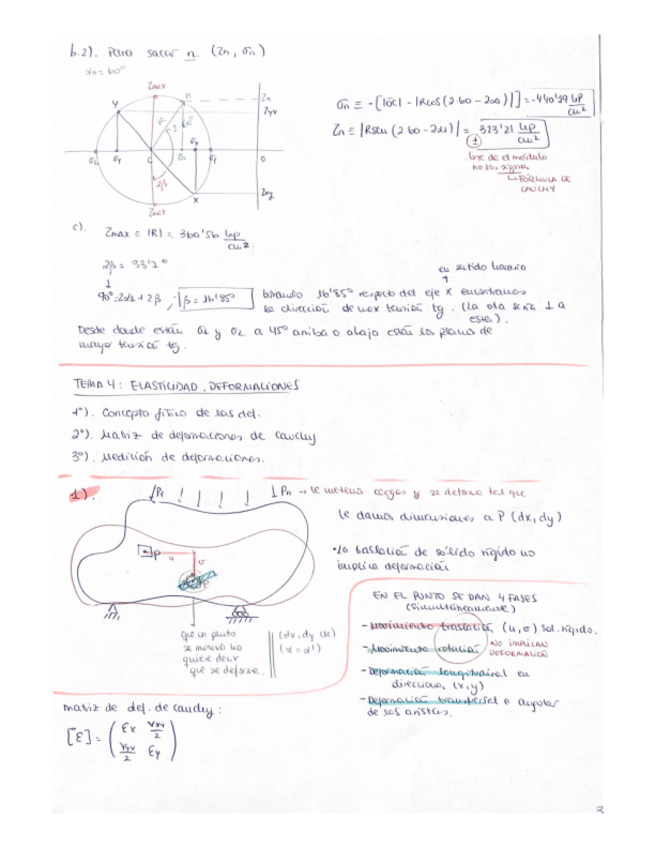 b.2). Para sacar n (τn, σn)
αn = 60º
τmax
n
y
τn
τxy
R
2·60º
σ2
σy
C
σn
σx
σ1
0
2β
x
τxy
τmax
σn ≡ -[|OC| - |Rcos(2·60-2α1)|] = -440'29 kp/cm²
τn ≡ |Rsen(2·60-2α1)| = 323'21 kp/cm²
±
no su signo.
↳ FÓRMULA DE CAUCHY
c). τmax ≡ |R| = 360'56 kp/cm²
2β = 33'7º
↓
90º=2α1+2β ; β = 16'85º
en sentido horario
↑
Girando 16'85º respecto del eje X encontramos
la dirección de max tensión tg. (la otra será ⊥ a
esta).
Desde donde están σ1 y σ2 a 45º arriba o abajo están los planos de
mayor tensión tg.
TEMA 4: ELASTICIDAD. DEFORMACIONES
1º). Concepto físico de las def.
2º). Matriz de deformaciones de Cauchy
3º). Medición de deformaciones.
1).
P1
Pn → le metemos cargas y se deforma tal que
le damos dimensiones a P (dx, dy)
P
u
v
• La traslación de sólido rígido no
implica deformación
que un punto
se mueva no
quiere decir
que se deforme.
(dx, dy cte)
(α = α')
EN EL PUNTO SE DAN 4 FASES
(simultáneamente)
- Movimiento traslación (u, v) sol. rígido.
- Movimiento rotación
NO IMPLICAN DEFORMACIÓN
- Deformación longitudinal en
direcciones (x, y)
- Deformación transversal o angular
de sus aristas.
matriz de def. de Cauchy:
[ε] = ( εx γxy/2
γxy/2 εy )
2